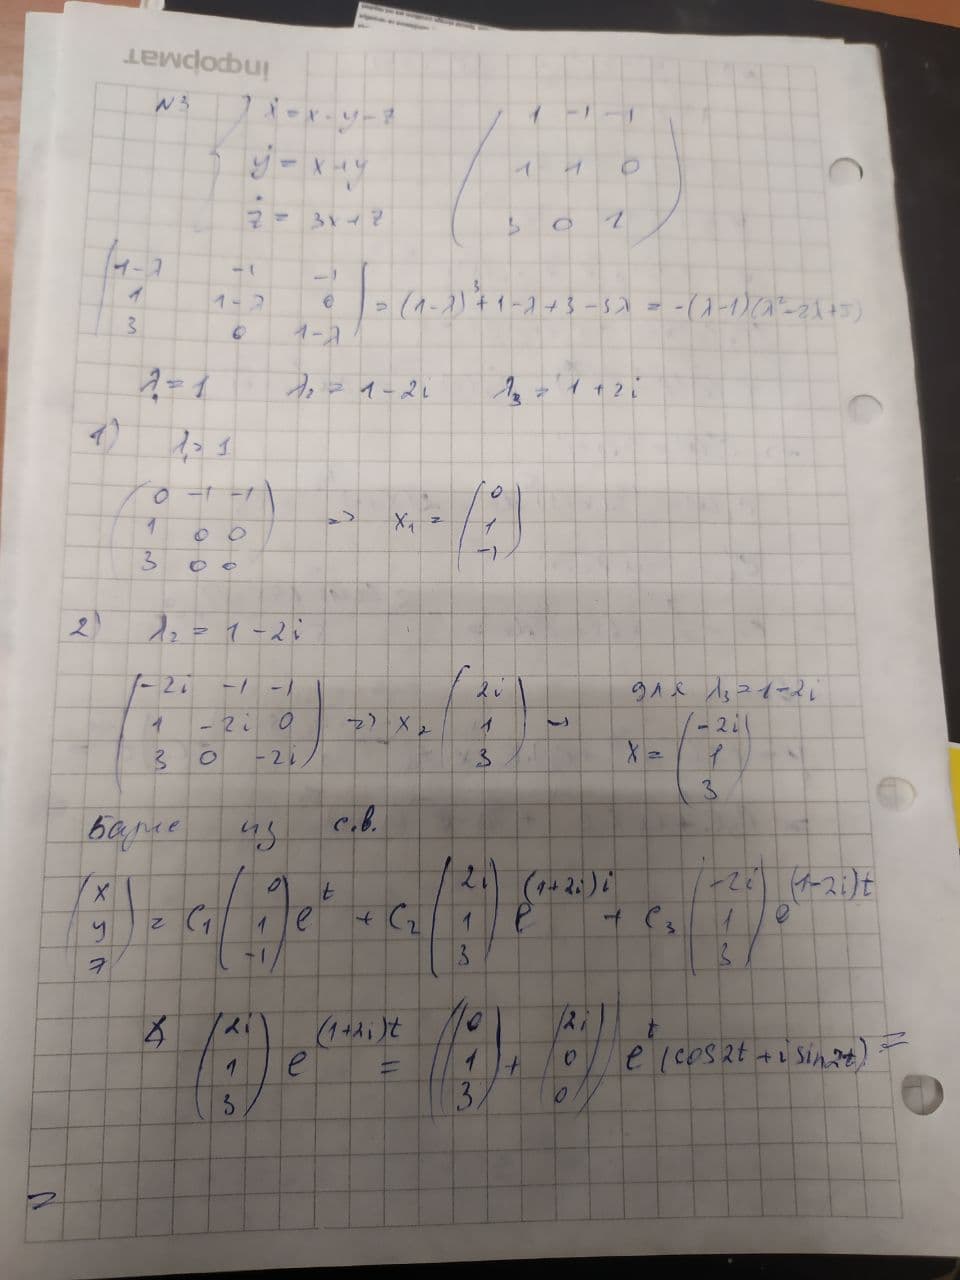 інформат
N3 { ẋ = x - y - z
ẏ = x + y
ż = 3x + z
( 1 -1 -1
1 1 0
3 0 1 )
| 1-λ -1 -1
1 1-λ 0
3 0 1-λ | = (1-λ)³ + 1-λ + 3 - 3λ = -(λ-1)(λ²-2λ+5)
λ₁ = 1 λ₂ = 1 - 2i λ₃ = 1 + 2i
1) λ₁ = 1
( 0 -1 -1
1 0 0
3 0 0 ) => x₁ = ( 0
1
-1 )
2) λ₂ = 1 - 2i
( -2i -1 -1
1 -2i 0
3 0 -2i ) => x₂ ( 2i
1
3 ) →
для λ₃ = 1 - 2i
x = ( -2i
1
3 )
из с.в.
( x
y
z ) = C₁ ( 0
1
-1 ) e^t + C₂ ( 2i
1
3 ) e^(1+2i)i + C₃ ( -2i
1
3 ) e^(1-2i)t
( 2i
1
3 ) e^(1+2i)t = ( ( 0
1
3 ) + ( 2i
0
0 ) ) e^t (cos2t + i sin2t) =
=